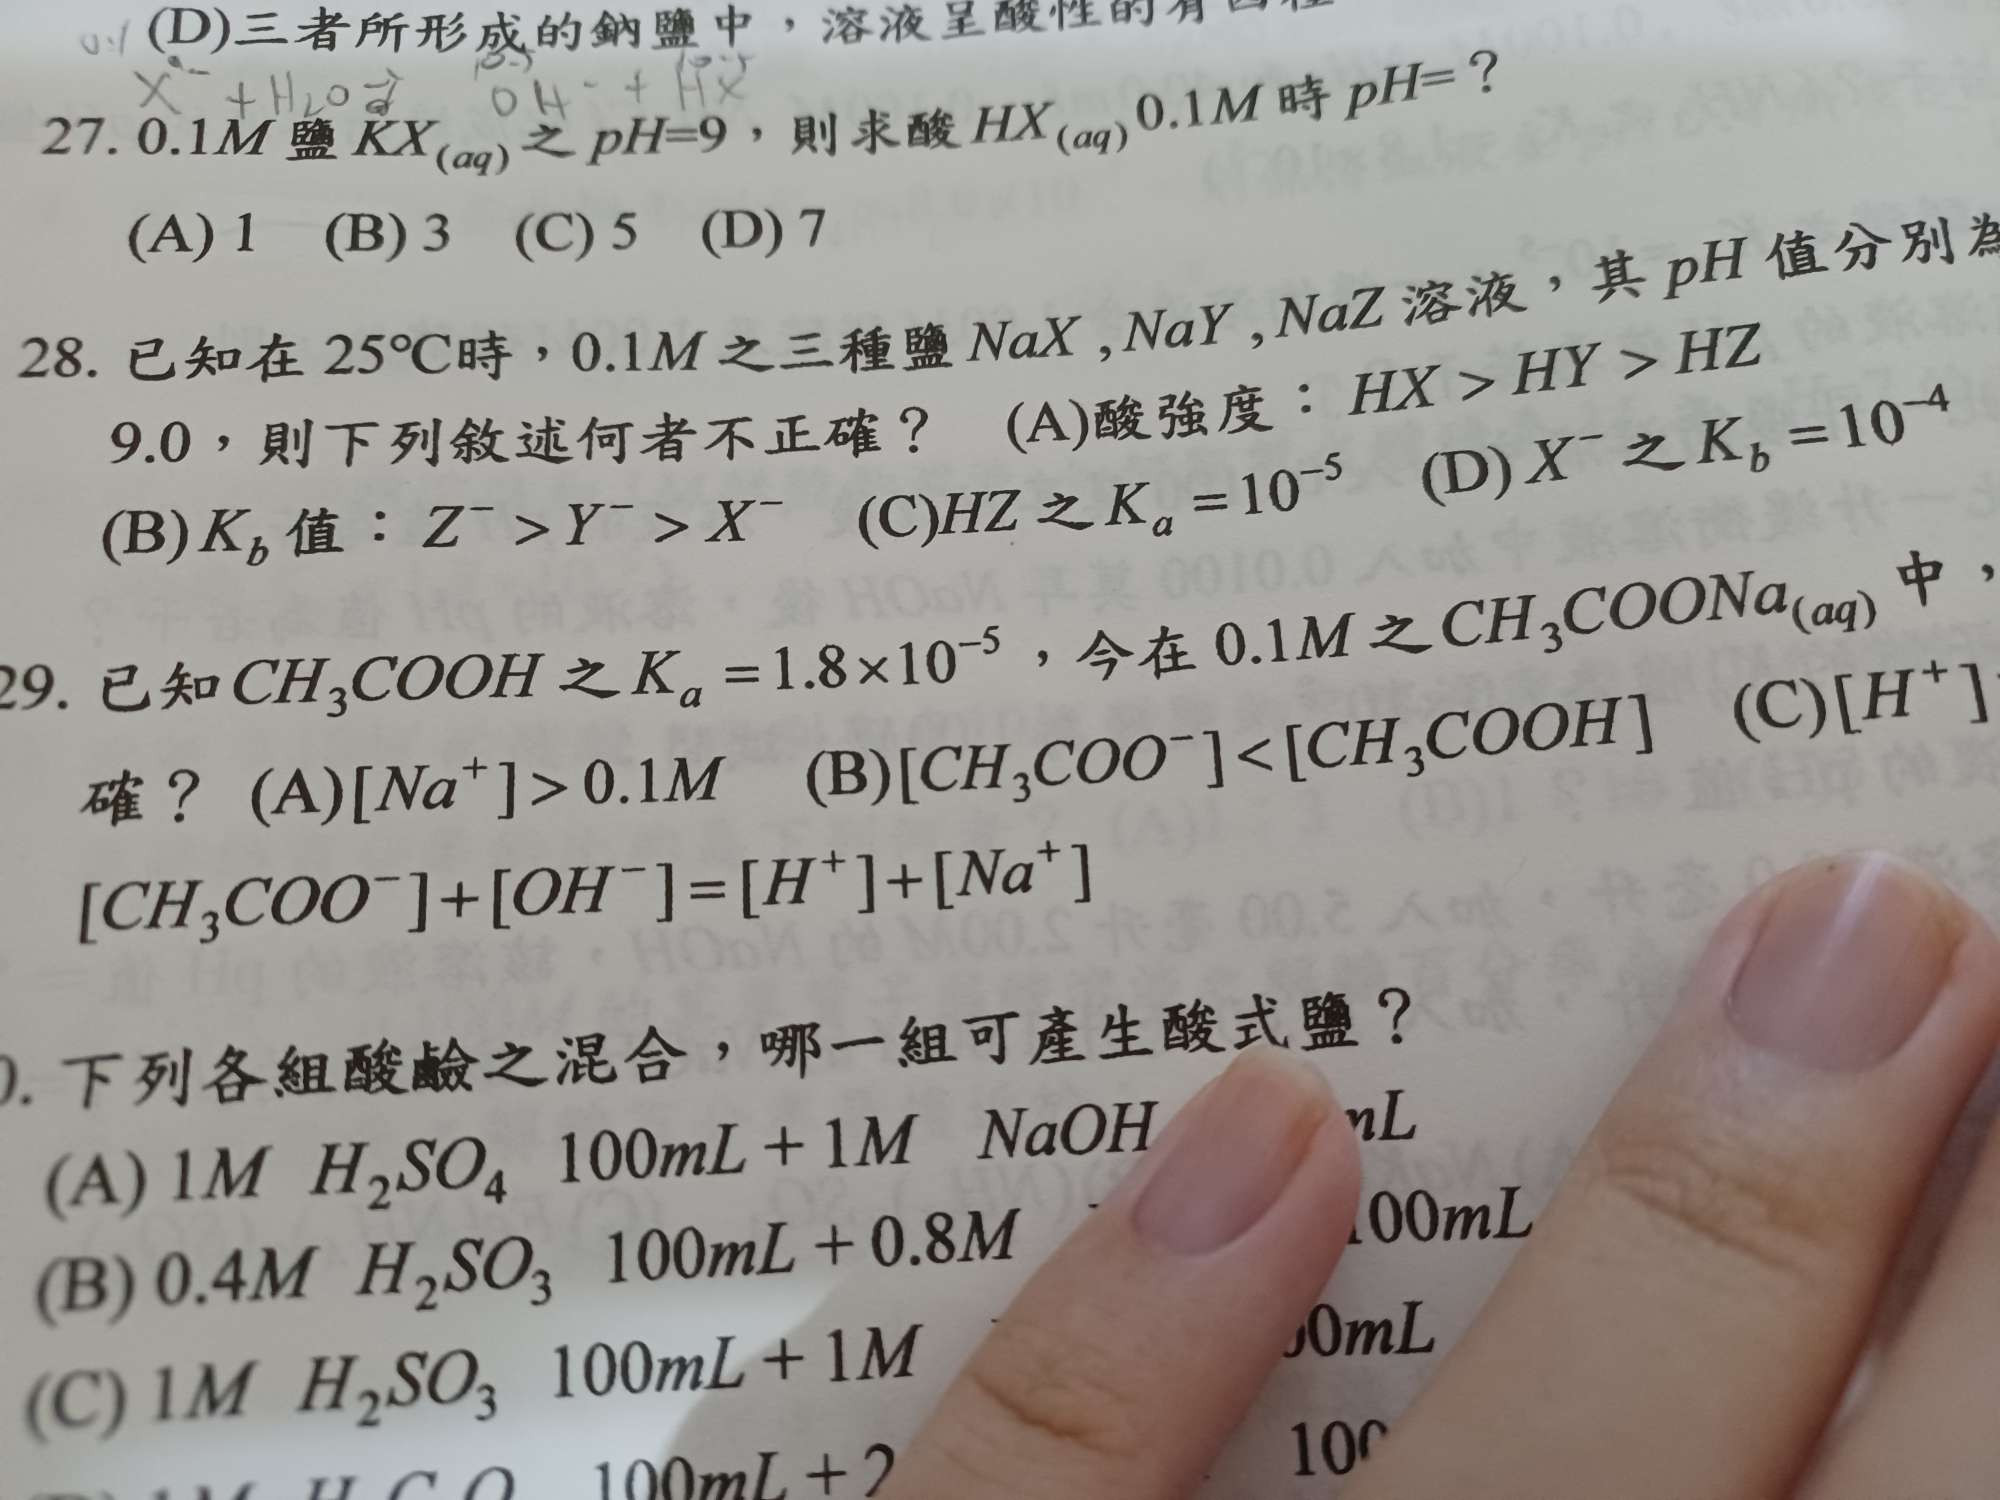 (D)三者所形成的鈉鹽中，溶液呈酸性的有四種
0.1
X⁻ + H₂O ⇌ OH⁻ + HX
10⁻⁵ 10⁻⁵
27. 0.1M 鹽 KX(aq) 之 pH=9，則求酸 HX(aq) 0.1M 時 pH=？
(A) 1 (B) 3 (C) 5 (D) 7
28. 已知在 25℃時，0.1M 之三種鹽 NaX , NaY , NaZ 溶液，其 pH 值分別為
9.0，則下列敘述何者不正確？ (A)酸強度：HX > HY > HZ
(B) K_b 值：Z⁻ > Y⁻ > X⁻ (C)HZ 之 K_a = 10⁻⁵ (D) X⁻ 之 K_b = 10⁻⁴
29. 已知 CH₃COOH 之 K_a = 1.8×10⁻⁵，今在 0.1M 之 CH₃COONa(aq) 中，
確？ (A)[Na⁺] > 0.1M (B)[CH₃COO⁻] < [CH₃COOH] (C)[H⁺]
[CH₃COO⁻]+[OH⁻]=[H⁺]+[Na⁺]
0. 下列各組酸鹼之混合，哪一組可產生酸式鹽？
(A) 1M H₂SO₄ 100mL + 1M NaOH mL
(B) 0.4M H₂SO₃ 100mL + 0.8M 100mL
(C) 1M H₂SO₃ 100mL + 1M 00mL
100mL + 2 100